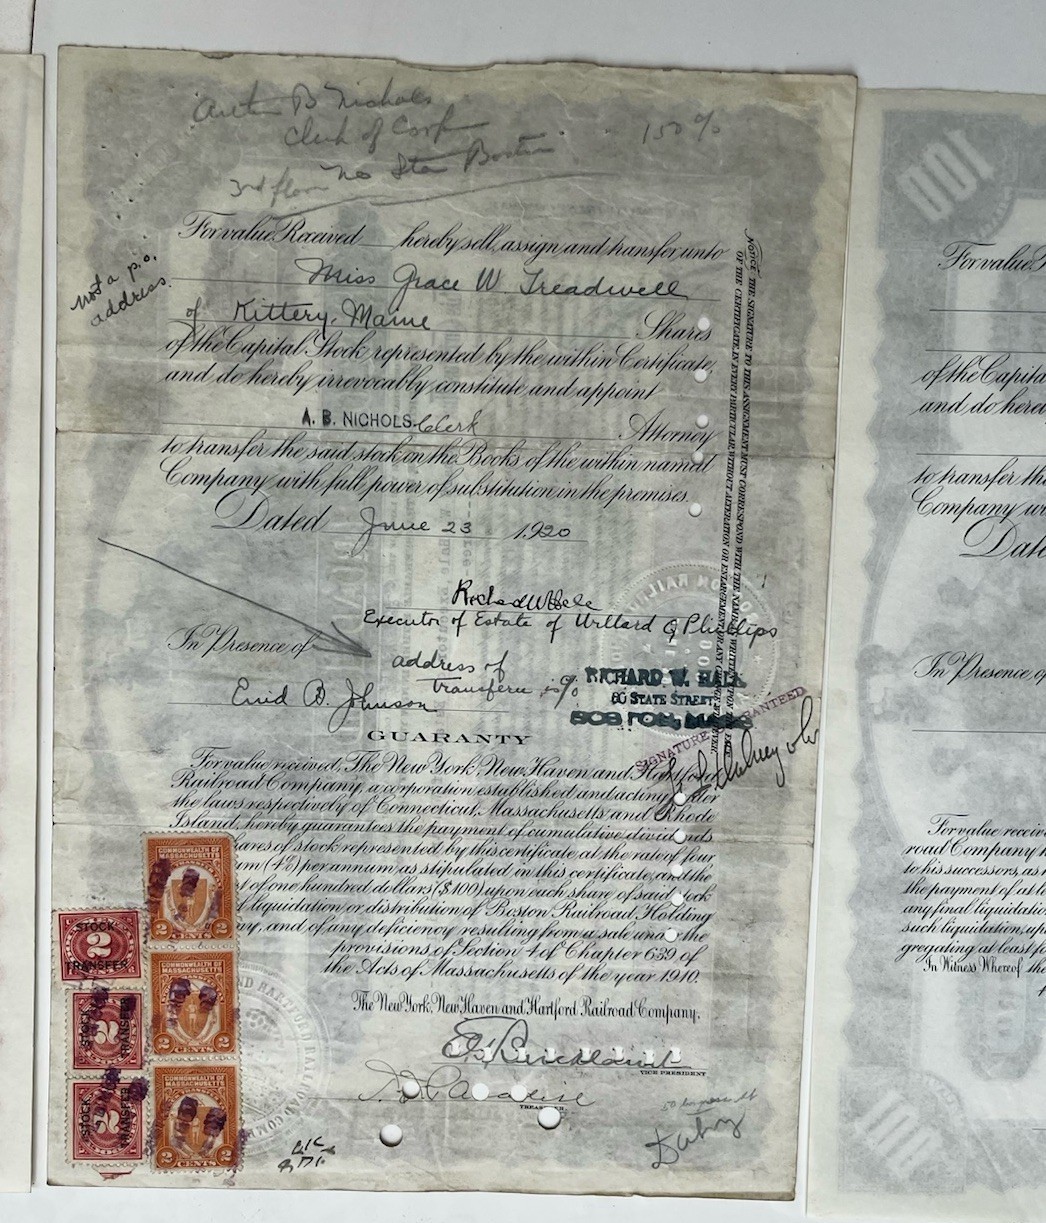 B Nichols
Clerk of Corp
150%
3rd floor No Sta Boston
For value Received hereby sell, assign and transfer unto
Miss Grace W. Treadwell
not a p.o.
address.
of Kittery, Maine Shares
of the Capital Stock represented by the within Certificate,
and do hereby irrevocably constitute and appoint
A. B. NICHOLS. Clerk Attorney
to transfer the said stock on the Books of the within named
Company with full power of substitution in the premises.
Dated June 23 1920
NOTICE THE SIGNATURE TO THIS ASSIGNMENT MUST CORRESPOND WITH THE NAME AS WRITTEN UPON THE FACE
OF THE CERTIFICATE IN EVERY PARTICULAR WITHOUT ALTERATION OR ENLARGEMENT OR ANY CHANGE WHATEVER.
Richard W Hale
Executor of Estate of Willard Q Phillips
In Presence of
address of
transferee is %
RICHARD W. HALE
60 STATE STREET,
BOSTON, MASS
Enid B. Johnson
SIGNATURE GUARANTEED
GUARANTY
For value received, The New York, New Haven and Hartford
Railroad Company, a corporation established and acting under
the laws respectively of Connecticut, Massachusetts and Rhode
Island, hereby guarantees the payment of cumulative dividends
ares of stock represented by this certificate, at the rate of four
um (4%) per annum as stipulated in this certificate, and the
t of one hundred dollars ($100) upon each share of said stock
f liquidation or distribution of Boston Railroad Holding
ny, and of any deficiency resulting from a sale under the
provisions of Section 4 of Chapter 639 of
the Acts of Massachusetts of the year 1910.
The New York, New Haven and Hartford Railroad Company,
VICE PRESIDENT
TREASURER.
COMMONWEALTH OF
MASSACHUSETTS
2 CENTS 2
COMMONWEALTH OF
MASSACHUSETTS
2 CENTS 2
COMMONWEALTH OF
MASSACHUSETTS
2 CENTS 2
STOCK
2
TRANSFER
STOCK
2
TRANSFER
STOCK
2
TRANSFER
100
For value R
of the Capita
and do here
to transfer th
Company w
Date
In Presence of
For value receiv
road Company h
to his successors, as
the payment of at l
any final liquidatio
such liquidation, up
gregating at least f
In Witness Whereof the
100